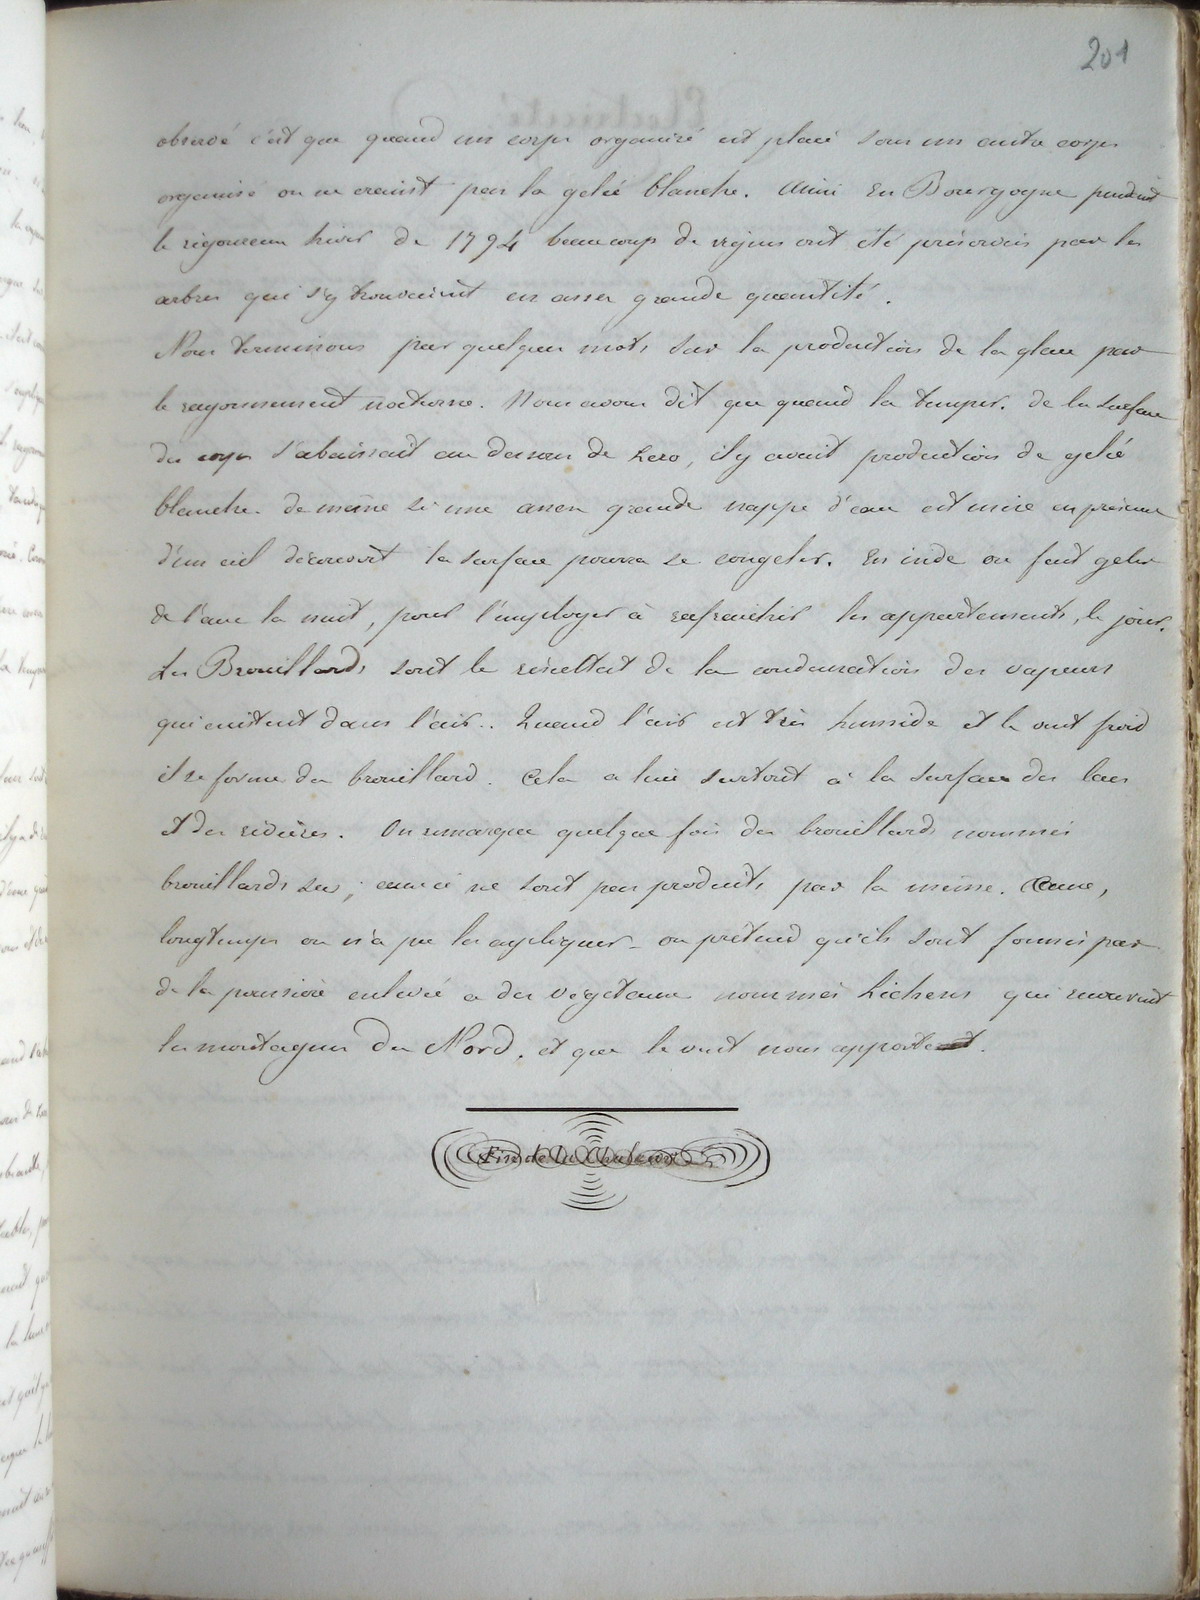 201
observé c'est que quand un corps organisé est placé sous un autre corps
organisé on ne craint pas la gelée blanche. Ainsi en Bourgogne pendant
le rigoureux hiver de 1794 beaucoup de vignes ont été préservées par les
arbres qui s'y trouvaient en assez grande quantité.
Nous terminons par quelques mots sur la production de la glace par
le rayonnement nocturne. Nous avons dit que quand la temper. de la surface
du corps s'abaissait au dessous de zero, il y avait production de gelée
blanche. de même si une assez grande nappe d'eau est mise en présence
d'un ciel découvert la surface pourra se congeler. En inde on fait geler
de l'eau la nuit, pour l'employer à rafraichir les appartements, le jour.
Les Brouillards sont le résultat de la condensation des vapeurs
qui existent dans l'air.. Quand l'air est très humide et le vent froid
il se forme du brouillard. Cela a lieu surtout à la surface des lacs
et des rivières. On remarque quelque fois des brouillards nommés
brouillards secs, ceux ci ne sont pas produits par la même. Cause,
longtemps on n'a pu les expliquer - on prétend qu'ils sont formés par
de la poussière enlevée a des végétaux nommés Lichens qui recouvrent
les montagnes du Nord. et que le vent nous apporte.
Fin de la Chaleur